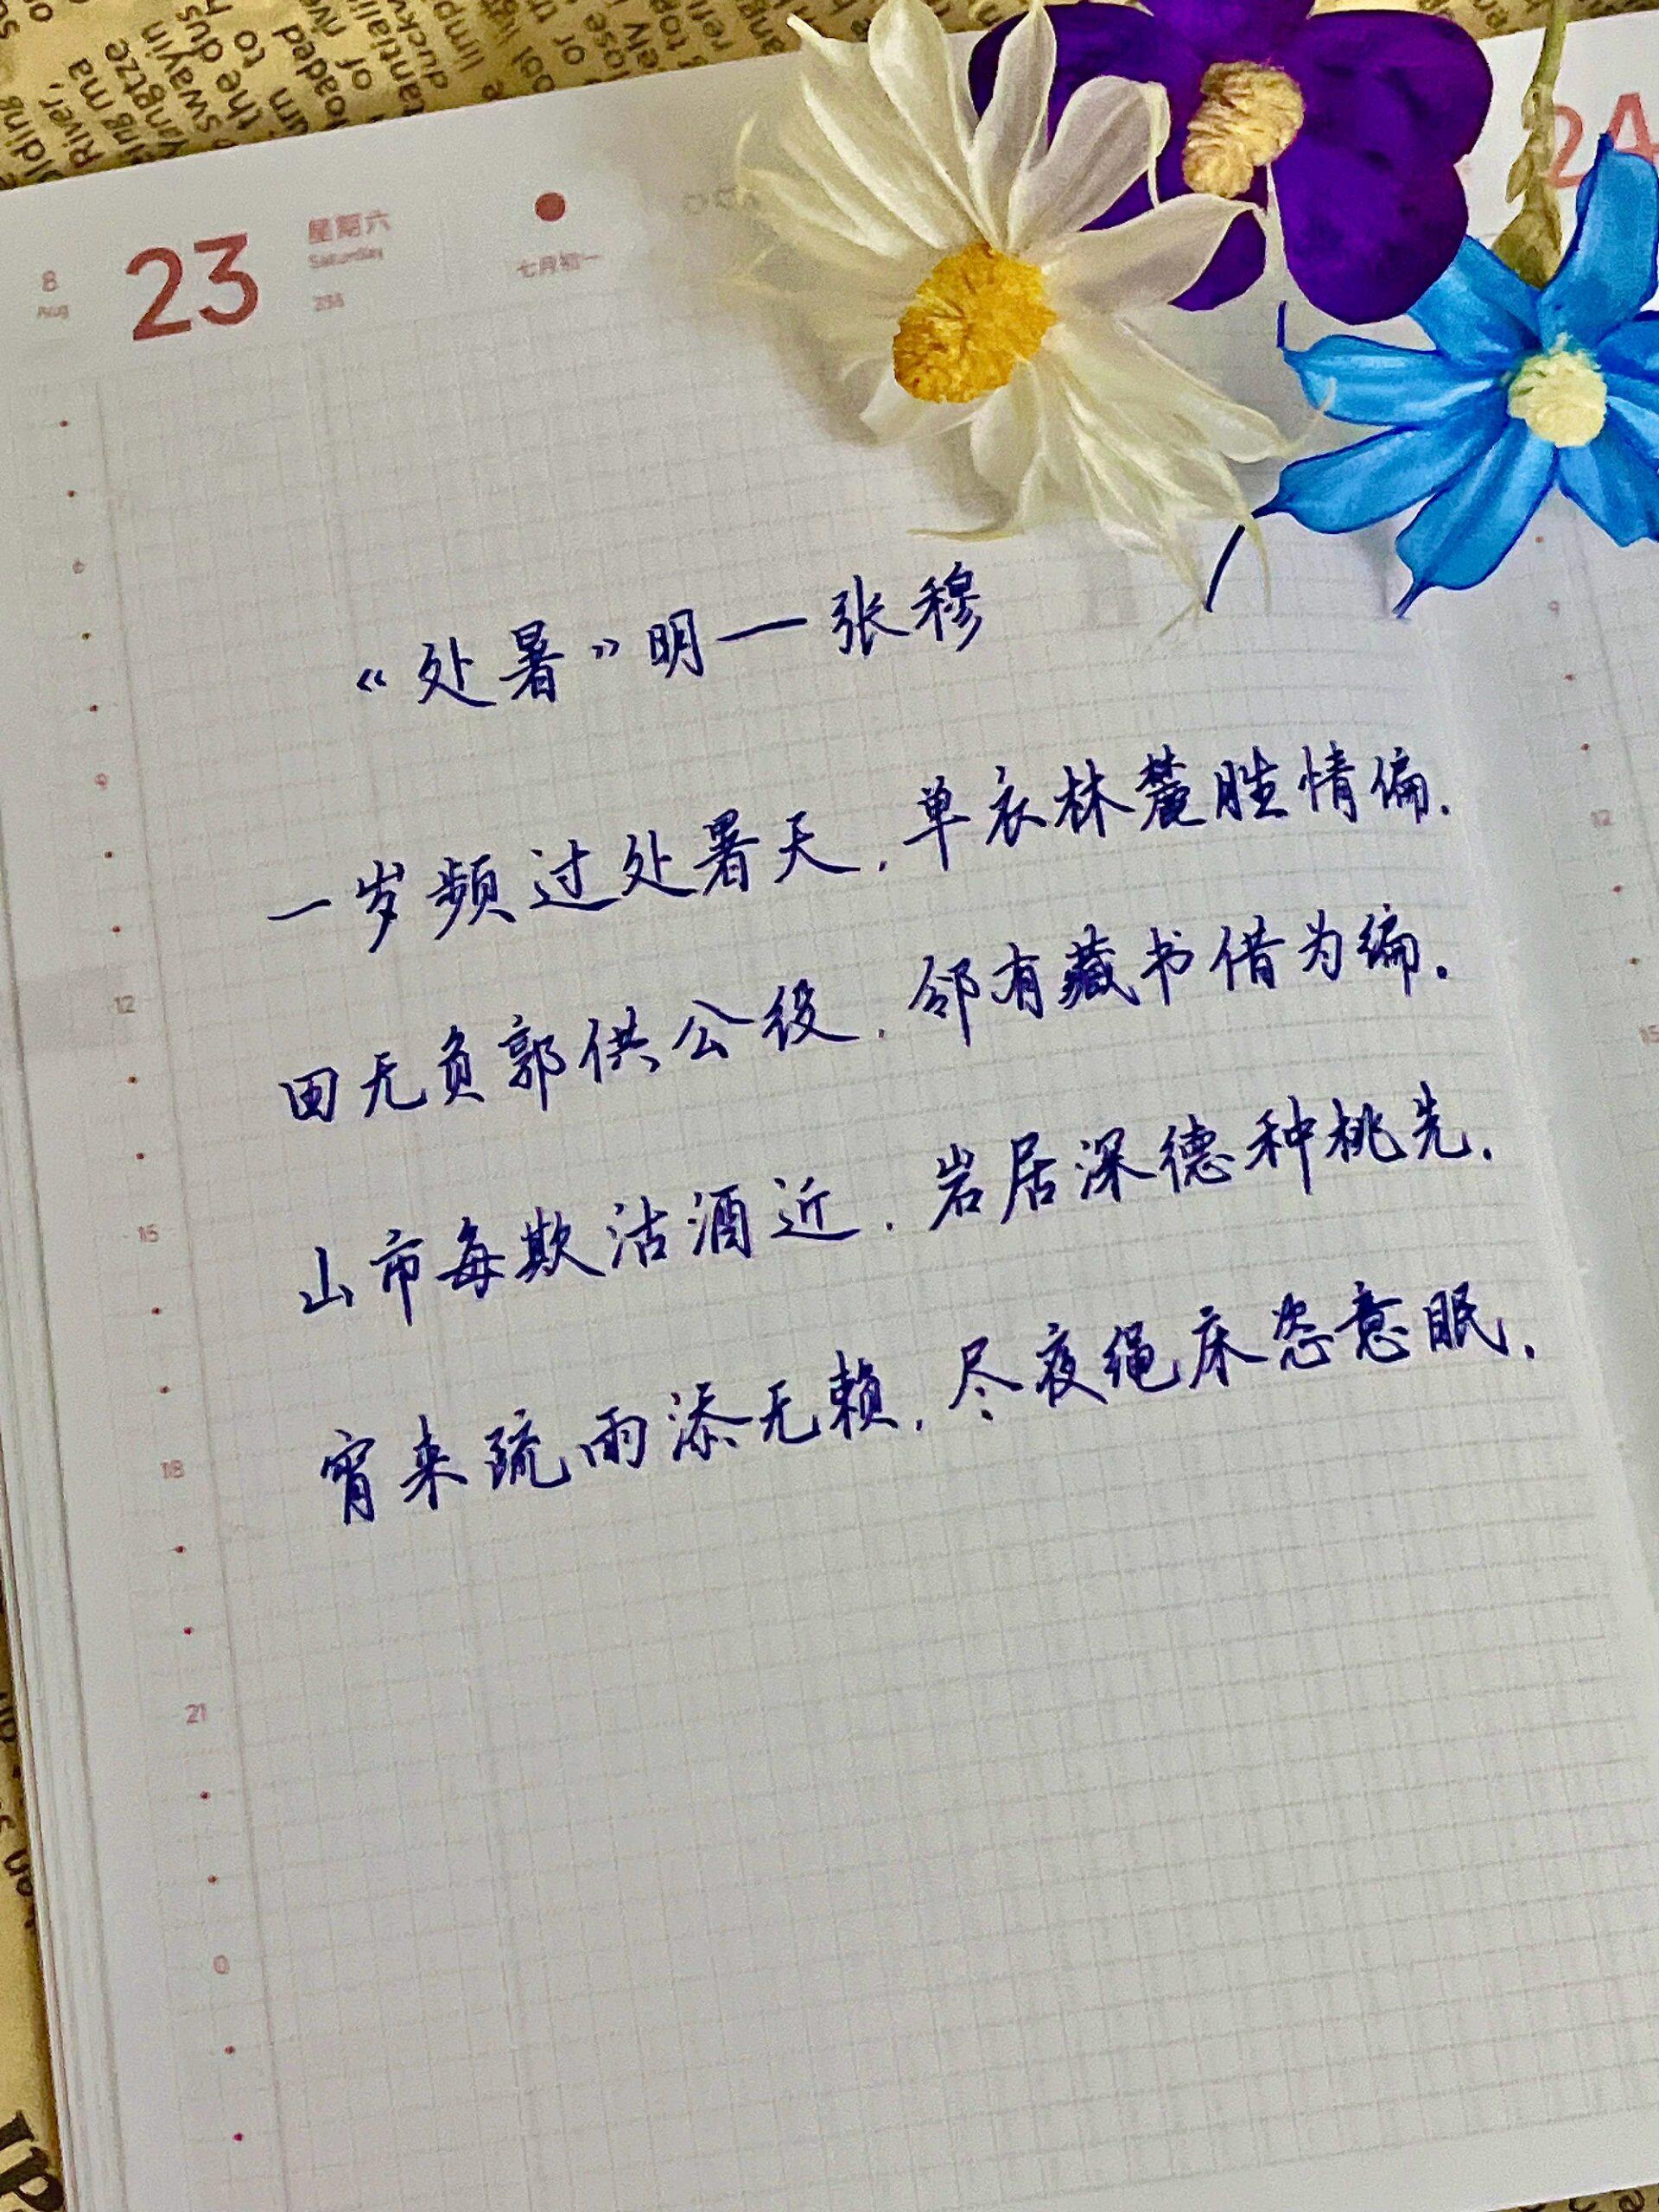 8
Aug
23
星期六
Saturday
七月初一
24
《处暑》明一张穆
一岁频过处暑天,单衣林麓胜情偏.
田无负郭供公役,邻有藏书借为编.
山市每欺沽酒近,岩居深德种桃先.
宵来疏雨添无赖,尽夜绳床恣意眠.
9
12
15
18
21
0
9
12
15